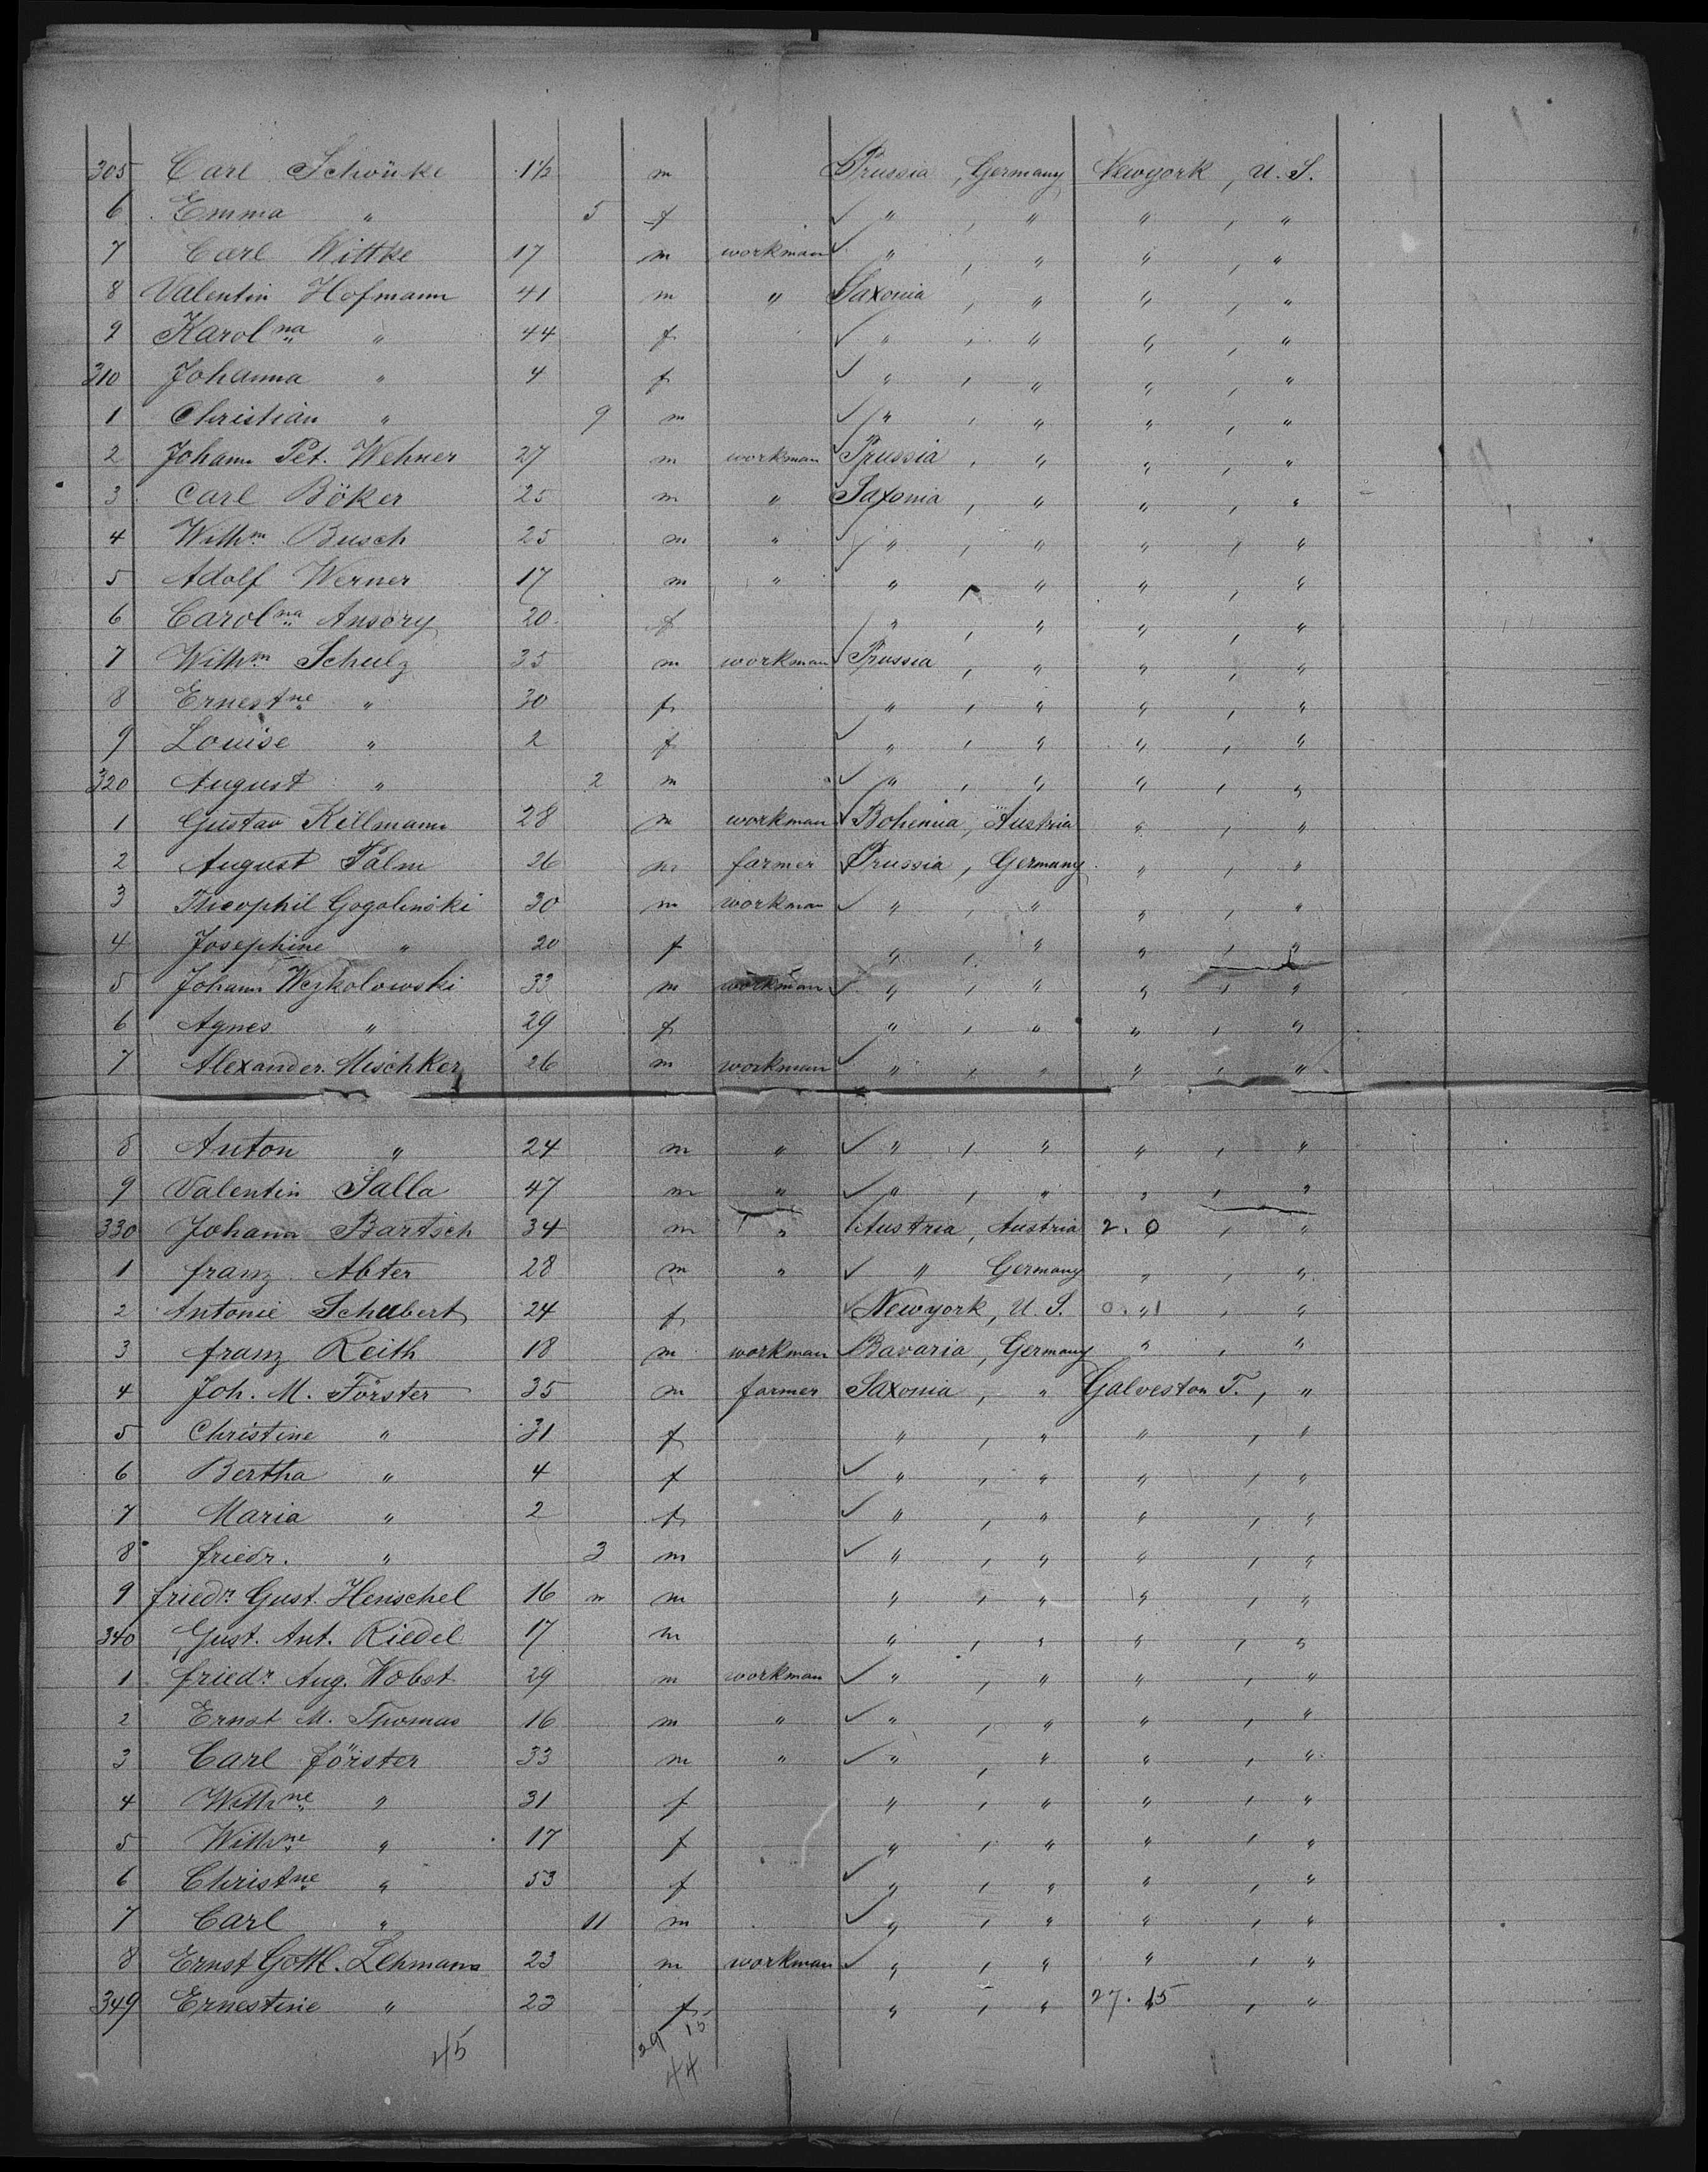 305 Carl Schönke 1½ m Prussia, Germany Newyork, U. S.
6 Emma " 5 f " , " " , "
7 Carl Wittke 17 m workman " , " " , "
8 Valentin Hofmann 41 m " Saxonia , " " , "
9 Karolna " 44 f " , " " , "
310 Johanna " 4 f " , " " , "
1 Christian " 9 m " , " " , "
2 Johann Pet. Wehner 27 m workman Prussia , " " , "
3 Carl Böker 25 m " Saxonia , " " , "
4 Wilhm Busch 25 m " " , " " , "
5 Adolf Werner 17 m " " , " " , "
6 Carolna Ansorg 20 f " , " " , "
7 Wilhm Schulz 35 m workman Prussia , " " , "
8 Ernestne " 30 f " , " " , "
9 Louise " 2 f " , " " , "
320 August " 2 m " , " " , "
1 Gustav Killmann 28 m workman Bohemia, Austria " , "
2 August Palm 26 m farmer Prussia, Germany " , "
3 Theophil Gogolinski 30 m workman " , " " , "
4 Josephine " 20 f " , " " , "
5 Johann Weykolowski 33 m workman " , " " , "
6 Agnes " 29 f " , " " , "
7 Alexander Mischker 26 m workman " , " " , "
8 Anton " 24 m " " , " " , "
9 Valentin Salla 47 m " " , " " , "
330 Johann Bartsch 34 m " Austria, Austria 2. 0 , "
1 franz Abter 28 m " " Germany " , "
2 Antonie Schubert 24 f Newyork, U. S. 0. " 1 , "
3 franz Reith 18 m workman Bavaria, Germany " , "
4 Joh. M. Förster 35 m farmer Saxonia, " Galveston T., "
5 Christine " 31 f " , " " , "
6 Bertha " 4 f " , " " , "
7 Maria " 2 f " , " " , "
8 friedr. " 3 m " , " " , "
9 friedr. Gust. Henschel 16 " m " , " " , "
340 Gust. Ant. Riedel 17 m " , " " , "
1 friedr Aug. Wobst 29 m workman " , " " , "
2 Ernst M. Thomas 16 m " " , " " , "
3 Carl förster 33 m " " , " " , "
4 Wilhne " 31 f " , " " , "
5 Wilhne " 17 f " , " " , "
6 Christne " 53 f " , " " , "
7 Carl " 11 m " , " " , "
8 Ernst Gottl. Lehmann 23 m workman " , " " , "
349 Ernestine " 23 f " , " 27. 15 , "
45 29 15
44